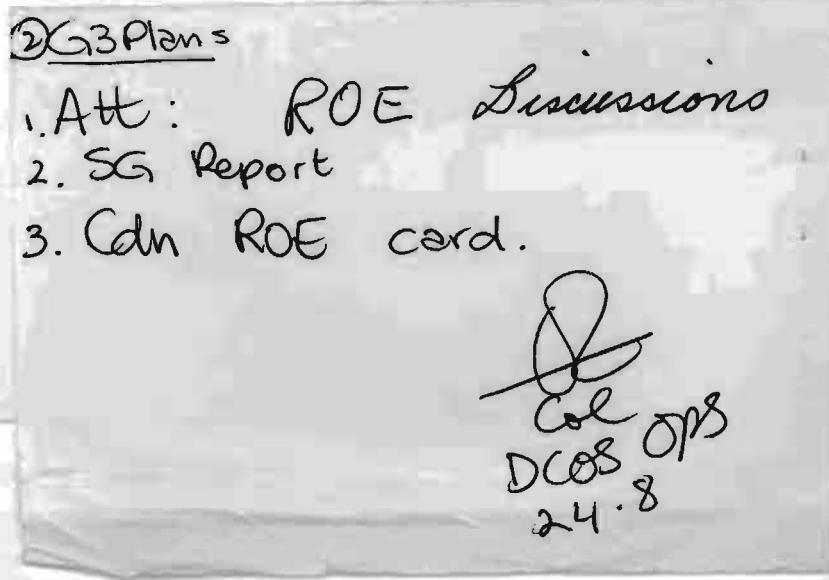 ②G3Plans
1. Att: ROE Discussions
2. SG Report
3. Cdn ROE card.
Col
DCOS Ops
24.8